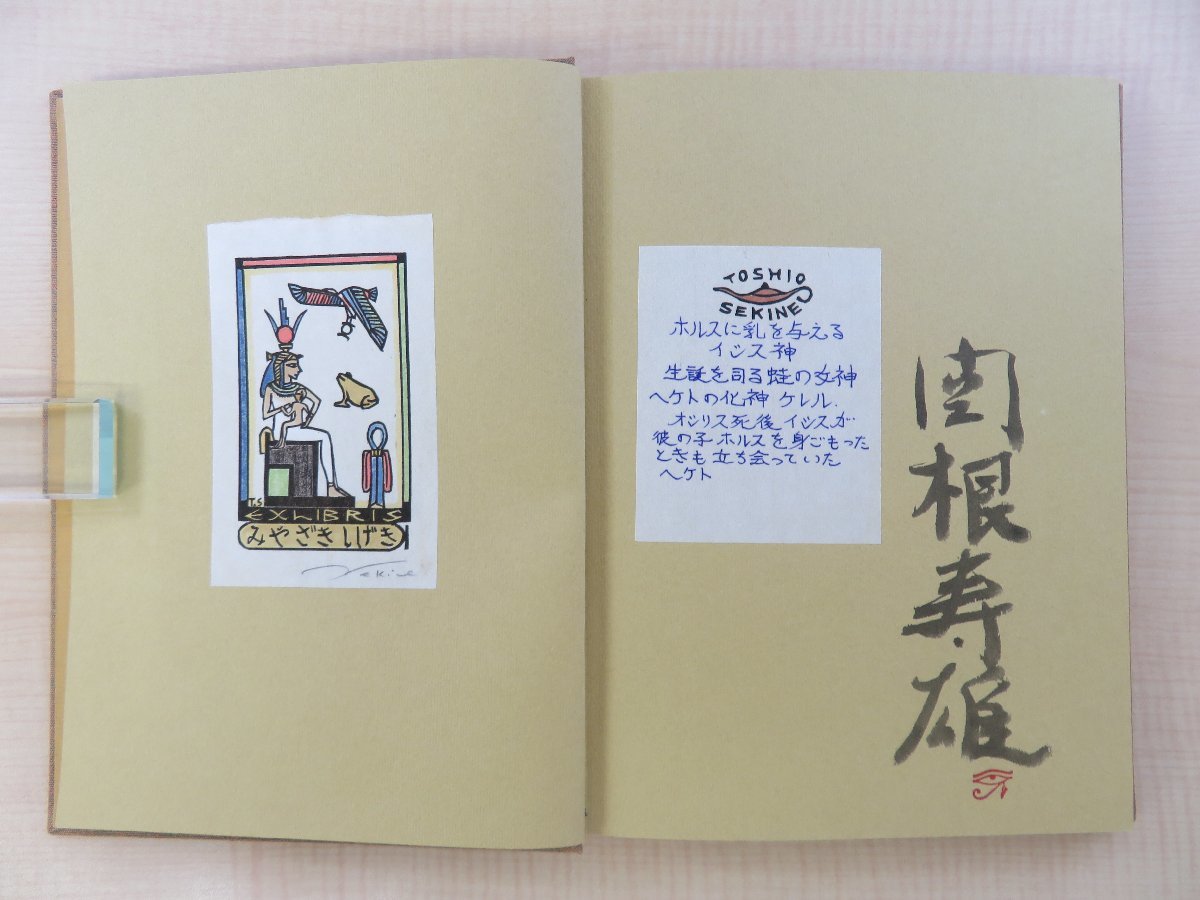 T.S
EXLIBRIS
みやざきしげき
Sekine
TOSHIO
SEKINE
ホルスに乳を与える
イシス神
生誕を司る蛙の女神
ヘケトの化神 ケレル.
オシリス死後 イシスが
彼の子 ホルスを身ごもった
ときも 立ち会っていた
ヘケト
関根寿雄